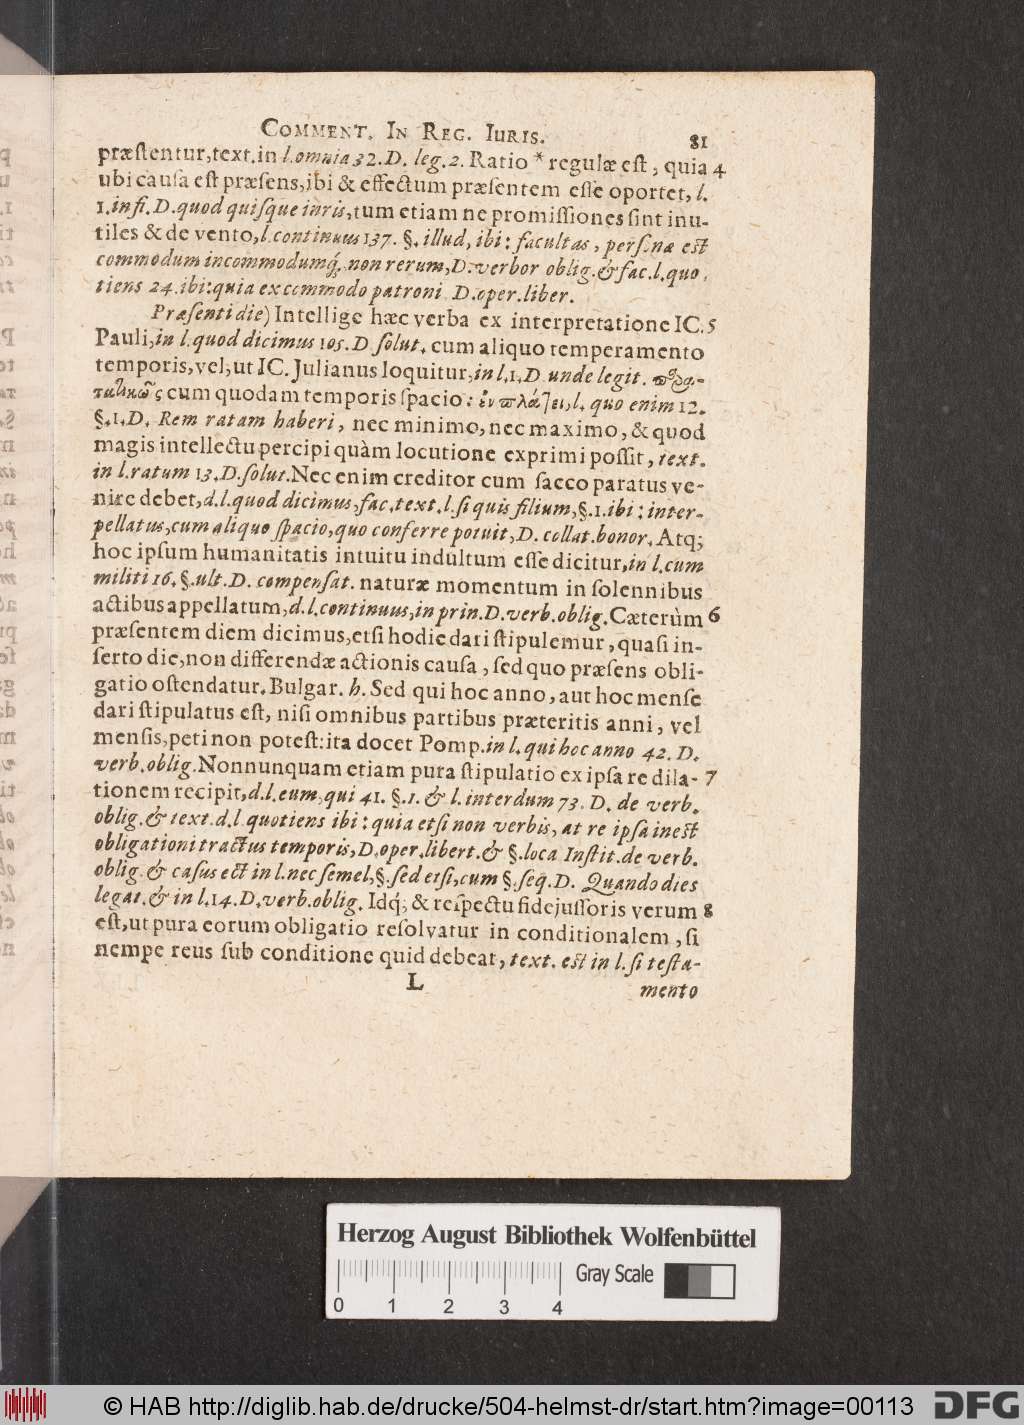 COMMENT. IN REG. IURIS. 81
præstentur,text.in l.omnia 32.D. leg.2. Ratio * regulæ est, quia 4
ubi causa est præsens,ibi & effectum præsentem esse oportet, l.
1.in fi.D.quod quisque iuris,tum etiam ne promissiones sint inu-
tiles & de vento,l.continuus 137. §. illud, ibi: facultas, personæ est
commodum incommodumq́;.non rerum,D.verbor oblig.& fac.l.quo.
tiens 24.ibi:quia ex commodo patroni D.oper.liber.
Præsenti die) Intellige hæc verba ex interpretatione IC. 5
Pauli,in l.quod dicimus 105.D solut. cum aliquo temperamento
temporis,vel,ut IC. Julianus loquitur,in l.1.D unde legit.
cum quodam temporis spacio: l. quo enim 12.
§.1.D. Rem ratam haberi, nec minimo,nec maximo, & quod
magis intellectu percipi quàm locutione exprimi possit, text.
in l.ratum 13.D.solut.Nec enim creditor cum sacco paratus ve-
nire debet,d.l.quod dicimus,fac.text.l.si quis filium,§.1.ibi: inter-
pellatus,cum aliquo spacio,quo conferre potuit,D. collat.bonor. Atq;
hoc ipsum humanitatis intuitu indultum esse dicitur,in l.cum
militi 16.§.ult.D. compensat. naturæ momentum in solennibus
actibus appellatum,d.l.continuus,in prin.D.verb.oblig.Cæterùm 6
præsentem diem dicimus,etsi hodie dari stipulemur, quasi in-
serto die,non differendæ actionis causa, sed quo præsens obli-
gatio ostendatur.Bulgar. h. Sed qui hoc anno, aut hoc mense
dari stipulatus est, nisi omnibus partibus præteritis anni, vel
mensis,peti non potest:ita docet Pomp.in l.qui hoc anno 42. D.
verb.oblig.Nonnunquam etiam pura stipulatio ex ipsa re dila- 7
tionem recipit,d.l.eum,qui 41. §.1. & l.interdum 73. D. de verb.
oblig.& text.d.l quotiens ibi: quia etsi non verbis, at re ipsa inest
obligationi tractus temporis,D.oper.libert.& §.loca Instit.de verb.
oblig.& casus est in l.nec semel,§.sed etsi,cum §.seq.D. Quando dies
legat.& in l.14.D.verb.oblig. Idq́; & respectu fidejussoris verum 8
est,ut pura eorum obligatio resolvatur in conditionalem, si
nempe reus sub conditione quid debeat, text. est in l.si testa-
L mento
Herzog August Bibliothek Wolfenbüttel
Gray Scale
0 1 2 3 4
© HAB http://diglib.hab.de/drucke/504-helmst-dr/start.htm?image=00113 DFG